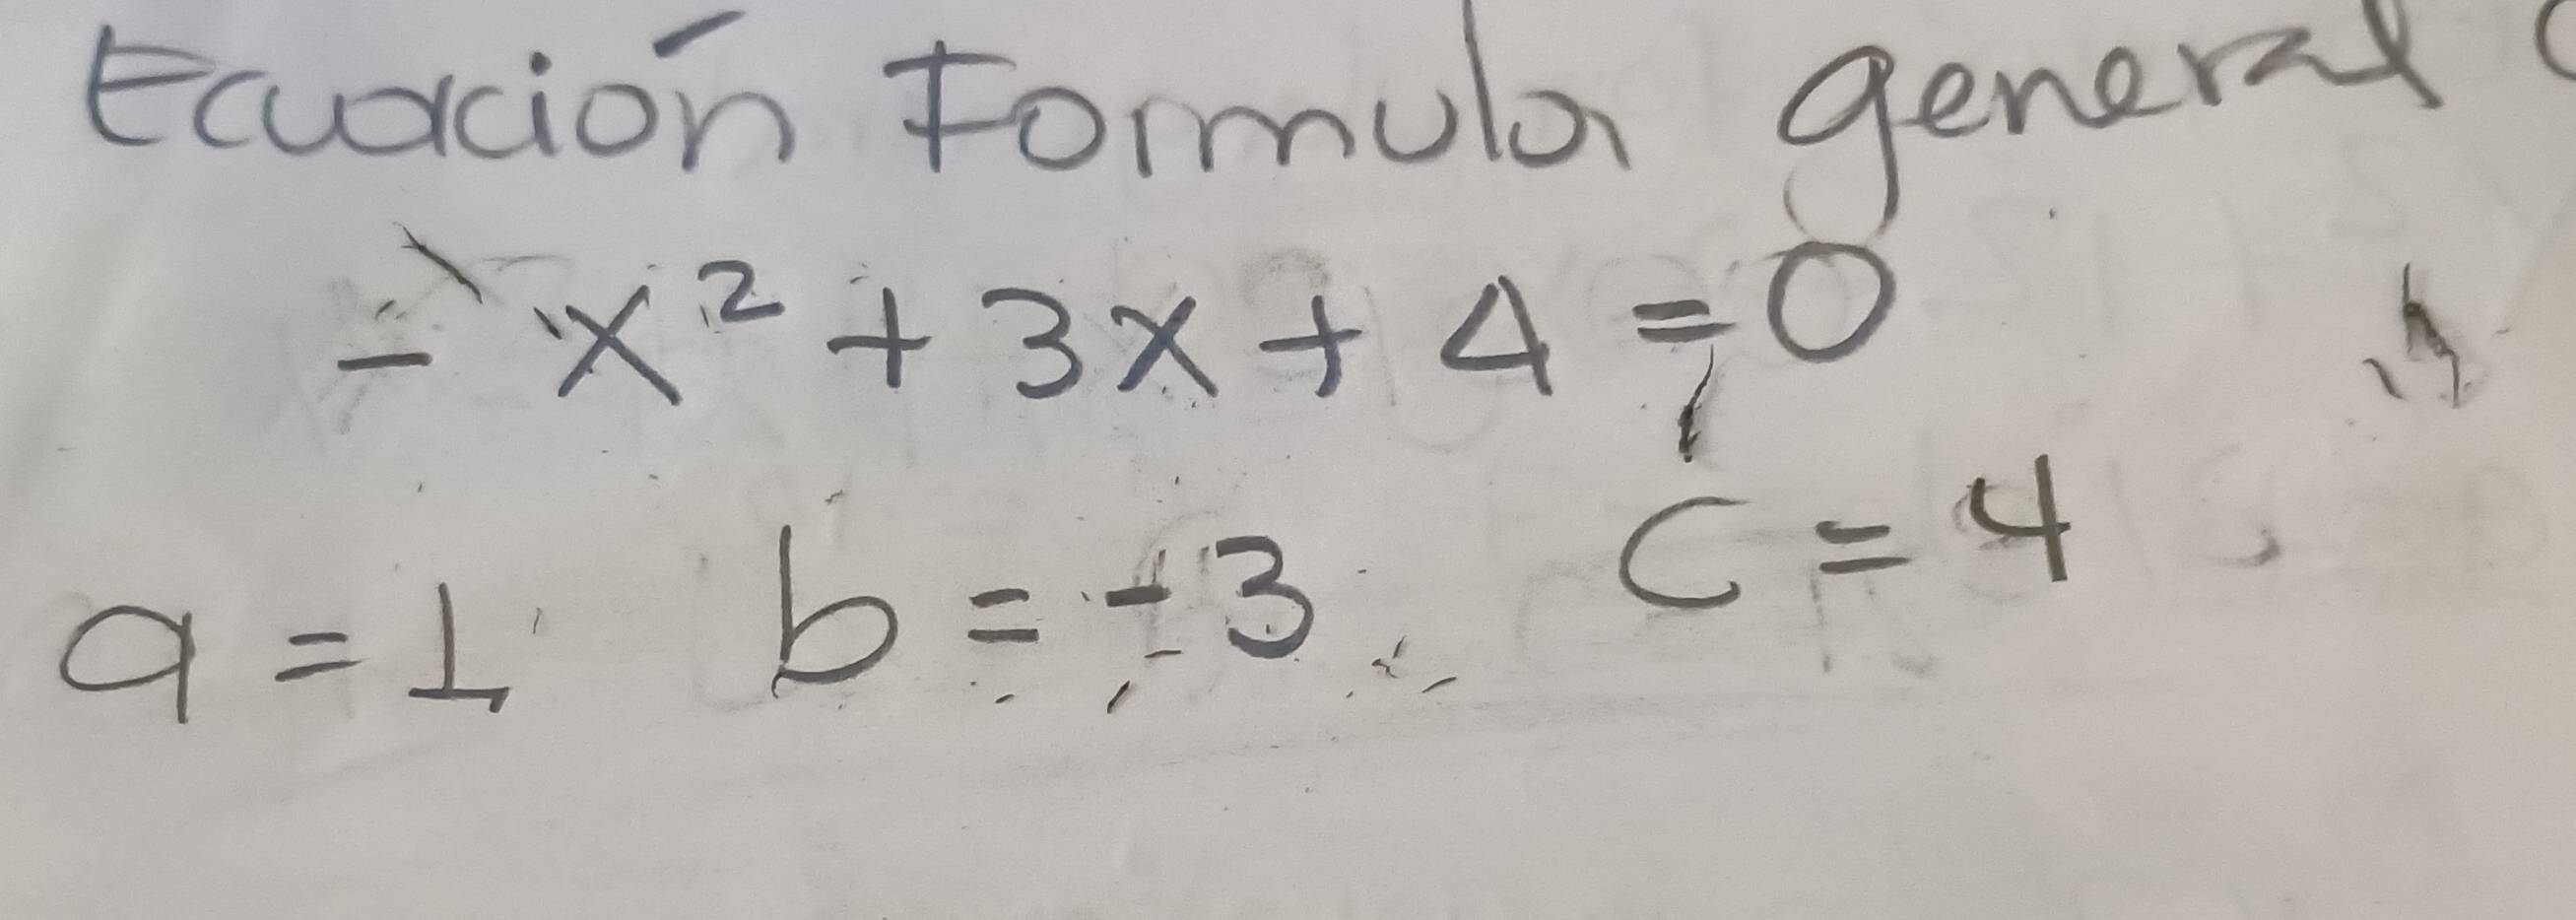 Ecuación Formula general
- x² + 3x + 4 = 0
a = 1 b = -3 c = 4